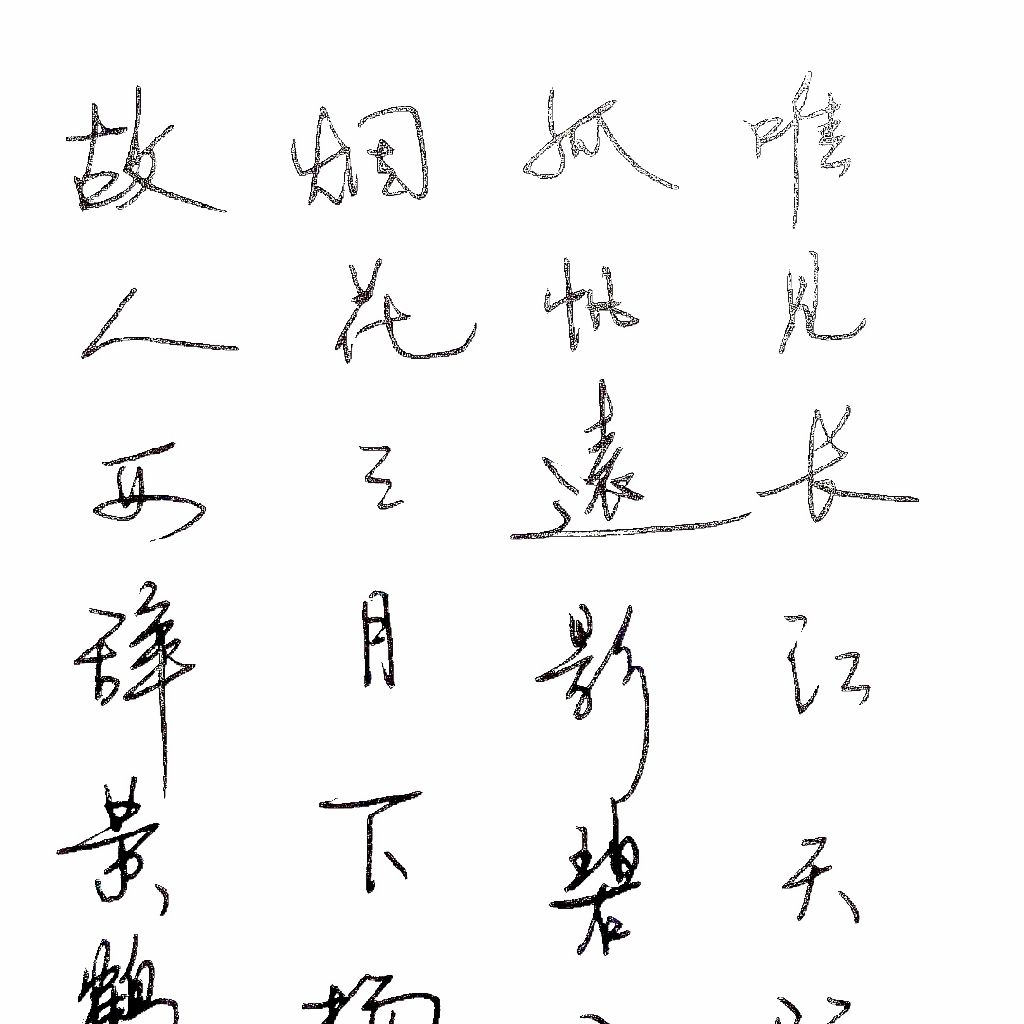 故人西辞黄鹤
烟花三月下扬
孤帆遠影碧
唯见长江天